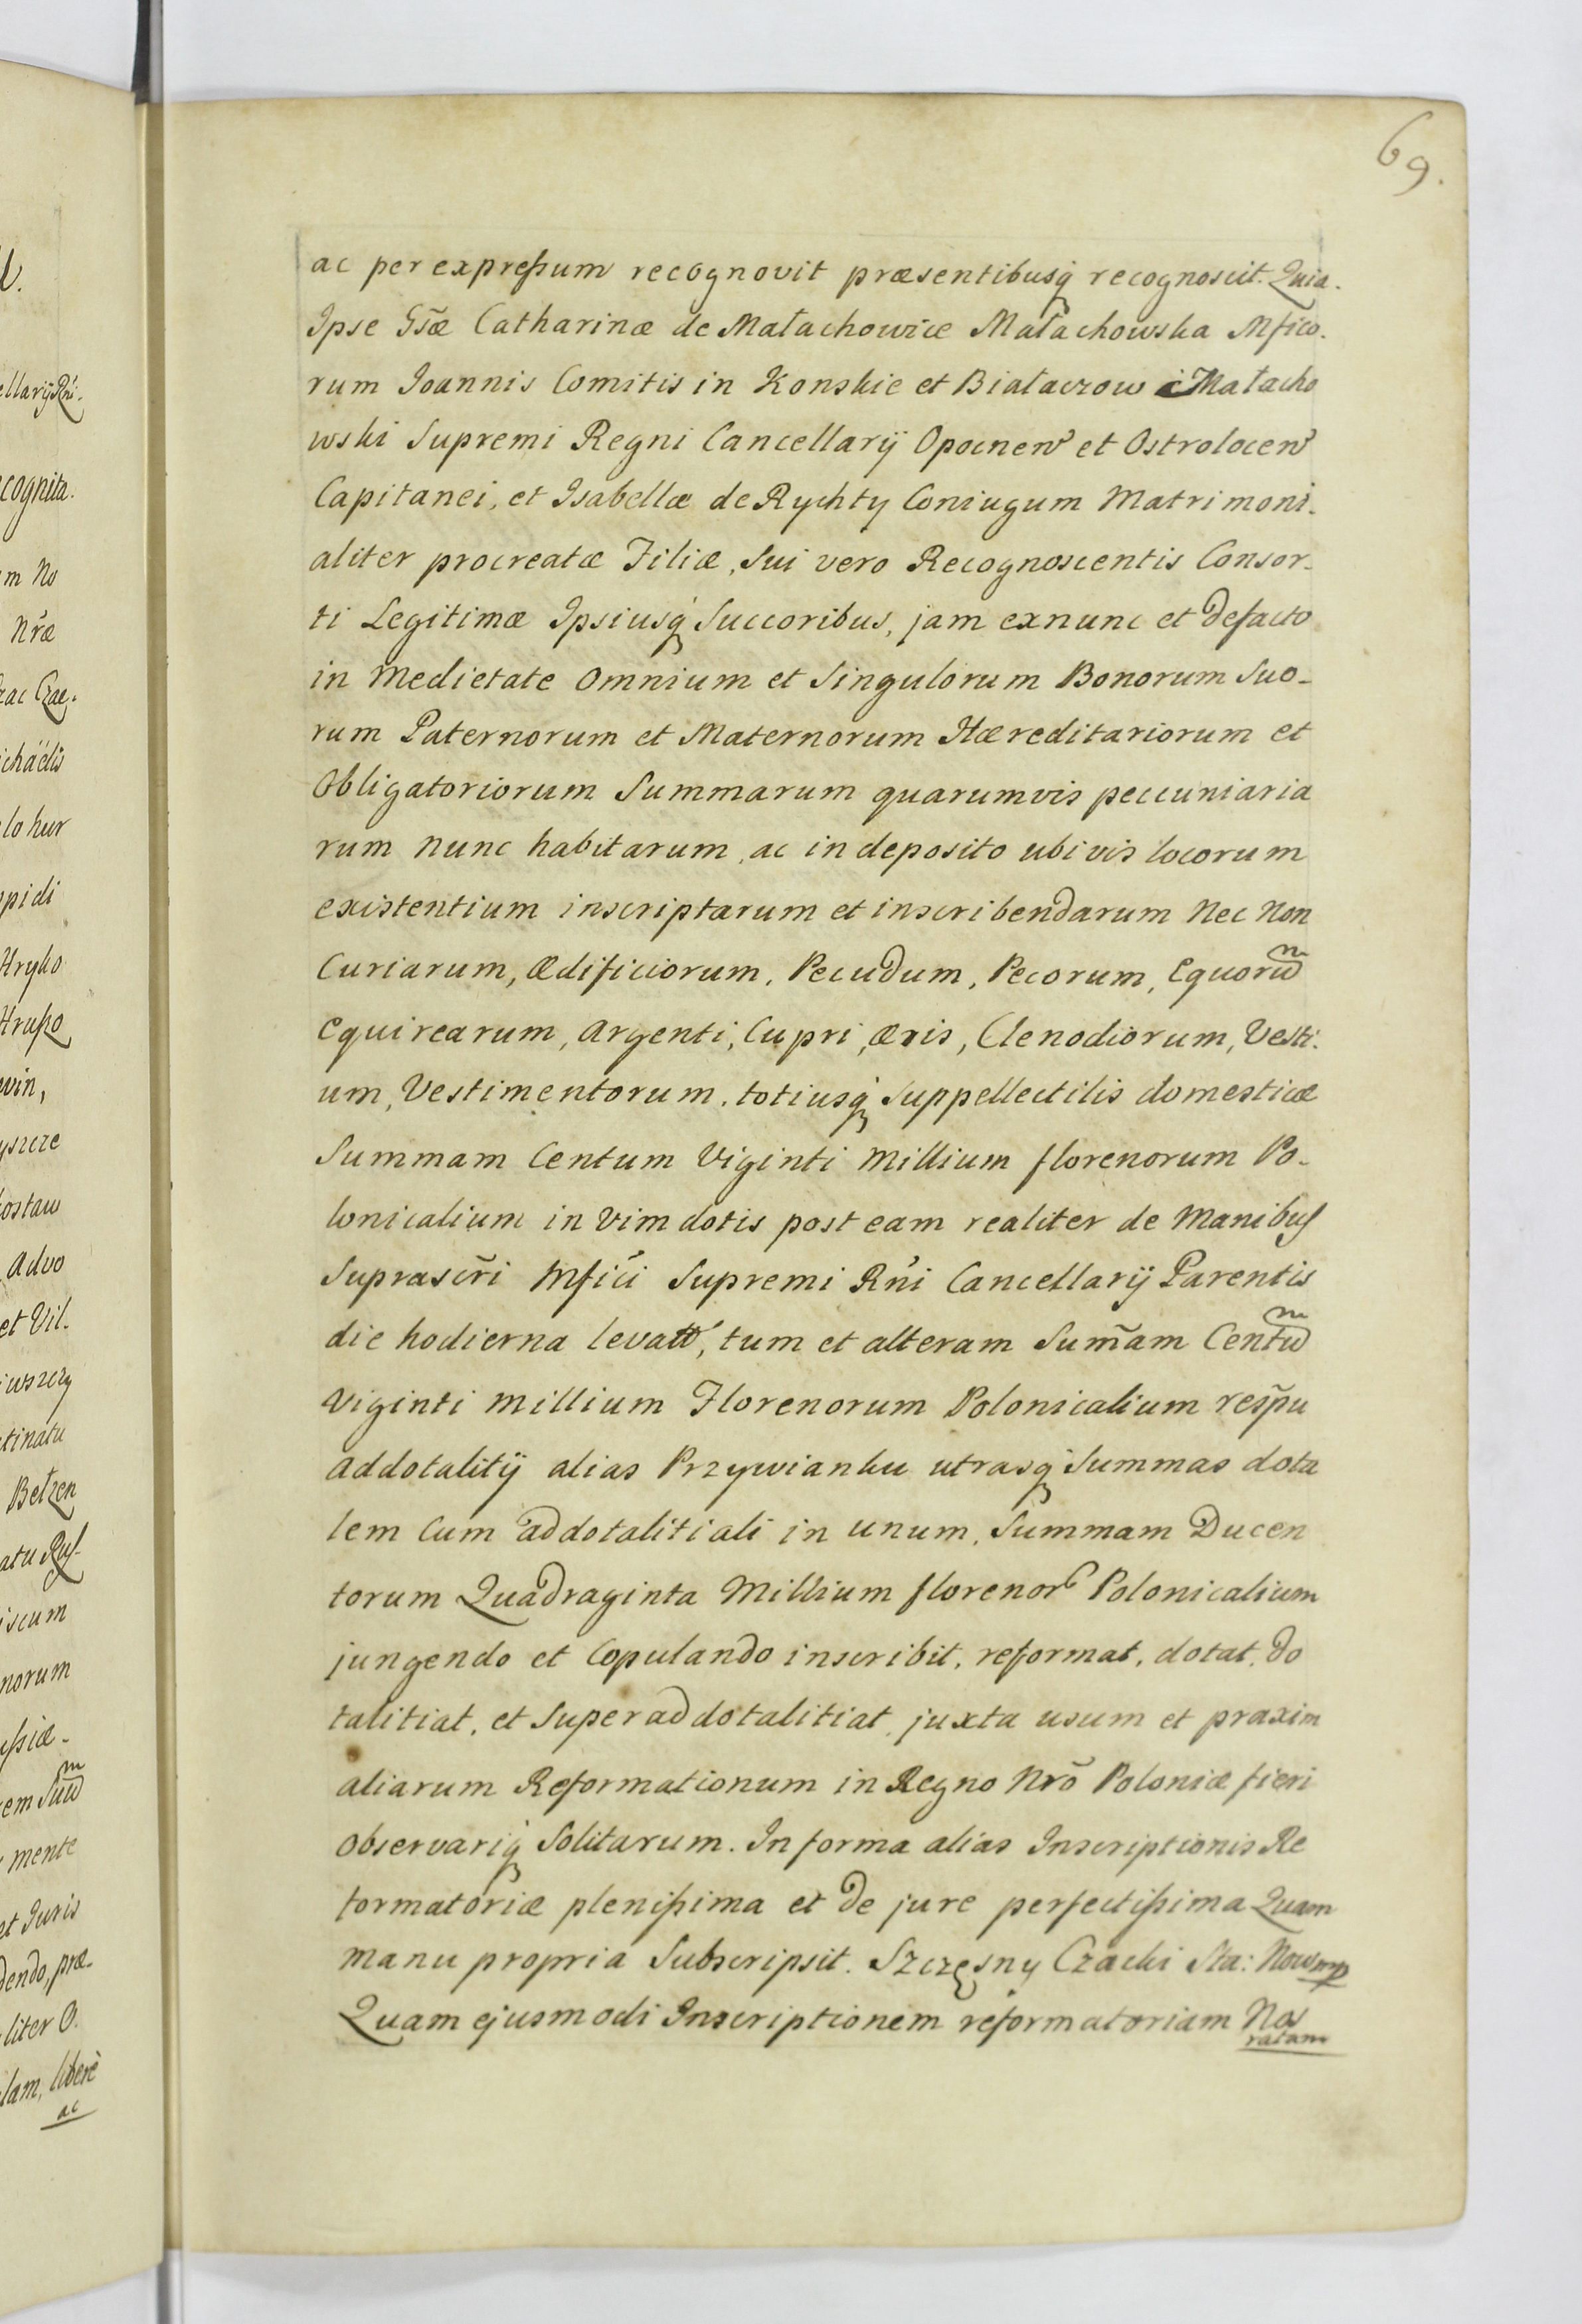 69.
ac per expressum recognovit præsentibusq́ recognoscit. Quia.
Ipse Gsæ̃ Catharinæ de Małachowice Małachowska Mfico.
rum Joannis Comitis in Konskie et Białaczow Małacho
wski Supremi Regni Cancellarij Opocnen et Ostrolocen
Capitanei, et Isabellæ de Rychty Coniugum Matrimoni.
aliter procreatæ Filiæ, Sui vero Recognoscentis Consor-
ti Legitimæ Ipsiusq́ Succoribus, jam exnunc et defacto
in Medietate Omnium et Singulorum Bonorum Suo-
rum Paternorum et Maternorum Hæreditariorum et
Obligatoriorum Summarum quarumvis peccuniaria
rum nunc habitarum, ac in deposito ubivis locorum
existentium inscriptarum et inscribendarum Nec Non
Curiarum, Ædificiorum, Pecudum, Pecorum, Equorum
Equirearum, Argenti, Cupri, Æris, Clenodiorum, Vesti.
um, Vestimentorum, totiusq́ Suppellectilis domesticæ
Summam Centum Viginti Millium florenorum Po-
lonicalium in Vim dotis post eam realiter de Manibus
Suprascr̃i Mfici Supremi Rńi Cancellarij Parentis
die hodierna levatt, tum et alteram Sum̃am Centum
Viginti Millium Florenorum Polonicalium resp̃u
Addotalitij alias Przywianku utrasq́ Summas dota
lem Cum addotalitiali in unum, Summam Ducen
torum Quadraginta Millium florenor Polonicalium
jungendo et Copulando inscribit, reformat, dotat, do
talitiat, et Superaddotalitiat, juxta usum et praxim
aliarum Reformationum in Regno Nrõ Poloniæ fieri
observariq́ Solitarum. In forma alias Inscriptionis Re
formatoriæ plenissima et de jure perfectissima Quam
manu propria Subscripsit. Szczęsny Czacki Sta: Now mp
Quam ejusmodi Inscriptionem reformatoriam Nos
ratam